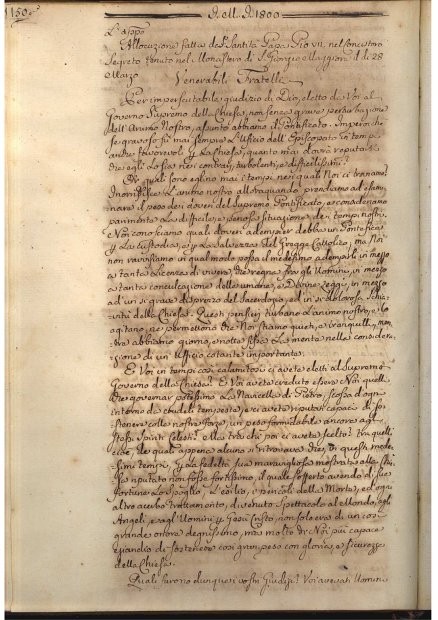 150.
A. M. D. 1800
L'appo
Allocuzione fatta da Santità Papa Pio VII. nel Concistoro
Segreto tenuto nel Monastero di S. Giorgio Maggiore il dì 28
Marzo
Venerabili Fratelli
Per imperscrutabile giudizio di Dio, eletto da Voi al
Governo Supremo della Chiesa, non senza grave perturbazione
dell'Animo Nostro, assunto abbiamo il Pontificato. Imperocchè
se gravoso fù mai sempre l'Ufficio dell'Episcopato in tempi
anche favorevoli p. la Chiesa, quanto mai dovrà reputarsi
che egli lo sia nei contrarj, turbolenti, e difficilissimi?
E quali sono eglino mai i tempi nei quali Noi ci troviamo?
Inorridisce l'animo nostro allorquando prendiamo ad esami-
nare il peso dei doveri del Supremo Pontificato, e consideriamo
parimente la difficile, e penosa situazione dei tempi nostri.
Noi conosciamo quali doveri adempier debba un Pontefice
p. la custodia, e p. la salvezza del Gregge Cattolico, ma Noi
non ravvisiamo in qual modo possa il medesimo adempirli in mezzo
a tanta licenza di vivere che regna fra gli Uomini, in mezzo
a tanta conculcazione delle umane, e Divine leggi, in mezzo
ad un sì grave disprezzo del Sacerdozio, ed in sì dolorosa schia-
vitù della Chiesa. Questi pensieri turbano l'animo nostro, e lo
agitano, nè permettono che Noi stiamo quieti, e tranquilli, men-
tre abbiamo giorno, e notte fissa la mente nella considera-
zione di un Ufficio cotanto importante.
E Voi in tempi così calamitosi ci avete eletti al Supremo
Governo della Chiesa? E Voi avete creduto essere Noi quelli
che governar potessimo la Navicella di Pietro, scossa d'ogn'
intorno da crudeli tempeste, e ci avete riputati capaci di so-
stenere colle nostre forze, un peso formidabile ancora agli
stessi Spiriti Celesti? Ma tra chi poi ci avete scelto? tra quelli
cioè, de' quali appena alcuno si ritrovava che, in questi mede-
simi tempi, p. la fedeltà sua maravigliosa mostrata alla Chie-
sa riputato non fosse fortissimo, il quale sofferto avendo di sue
fortune lo spoglio, l'esilio, e pericoli della Morte, ed ogni
altro acerbo trattamento, divenuto spettacolo al Mondo, agli
Angeli, e agl'Uomini p. Gesù Cristo, non solo era di un così
grande onore degnissimo, ma molto di Noi più capace
eziandio di sostenere così gran peso con gloria, e sicurezza
della Chiesa.
Quali furono dunque i vostri Giudizj? Voi avevati Uomini